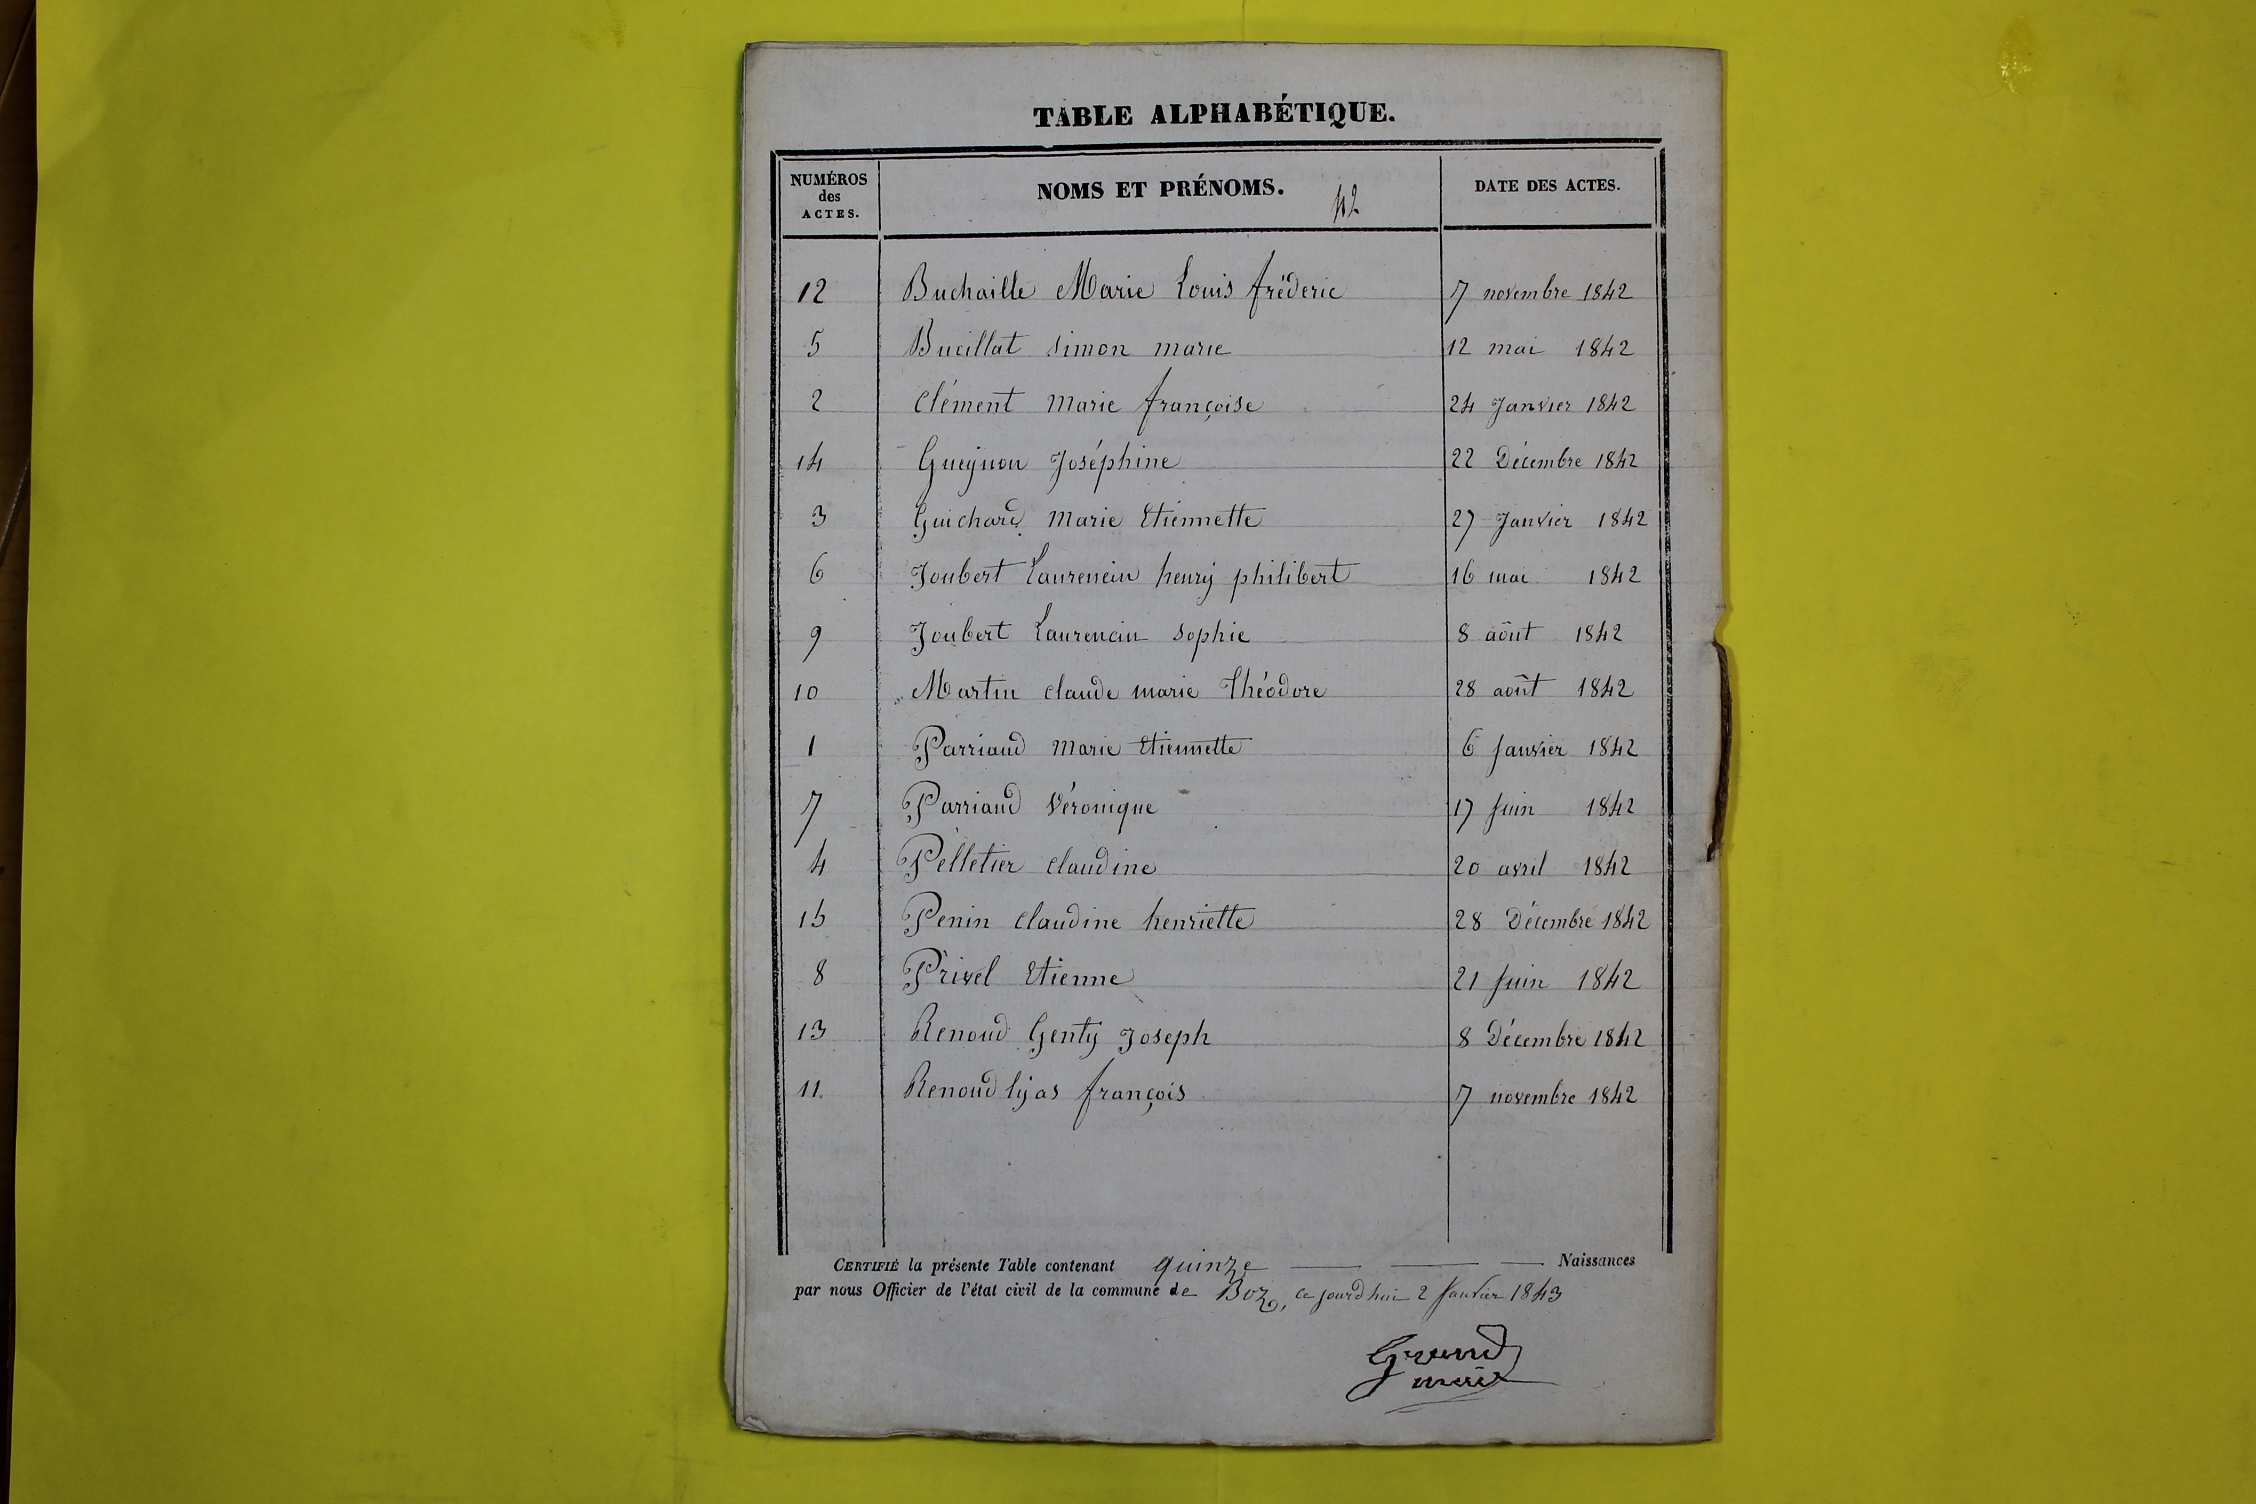 TABLE ALPHABÉTIQUE.
NUMÉROS des ACTES. NOMS ET PRÉNOMS. 42 DATE DES ACTES.
12 Buchaille Marie Louis fréderic 7 novembre 1842
5 Bucillat simon marie 12 mai 1842
2 Clément marie françoise 24 Janvier 1842
14 Gueynon Joséphine 22 Décembre 1842
3 Guichard marie Etiennette 27 Janvier 1842
6 Joubert Laurencin henry philibert 16 mai 1842
9 Joubert Laurencin sophie 8 aôut 1842
10 Martin claude marie théodore 28 août 1842
1 Parriaud marie Etiennette 6 Janvier 1842
7 Parriaud Véronique 17 Juin 1842
4 Pelletier claudine 20 avril 1842
15 Penin claudine henriette 28 Décembre 1842
8 Privel Etienne 21 Juin 1842
13 Renoud Genty Joseph 8 Décembre 1842
11 Renoud lyas françois 7 novembre 1842
CERTIFIÉ la présente Table contenant quinze Naissances
par nous Officier de l'état civil de la commune de Boz, ce jourd'hui 2 Janvier 1843